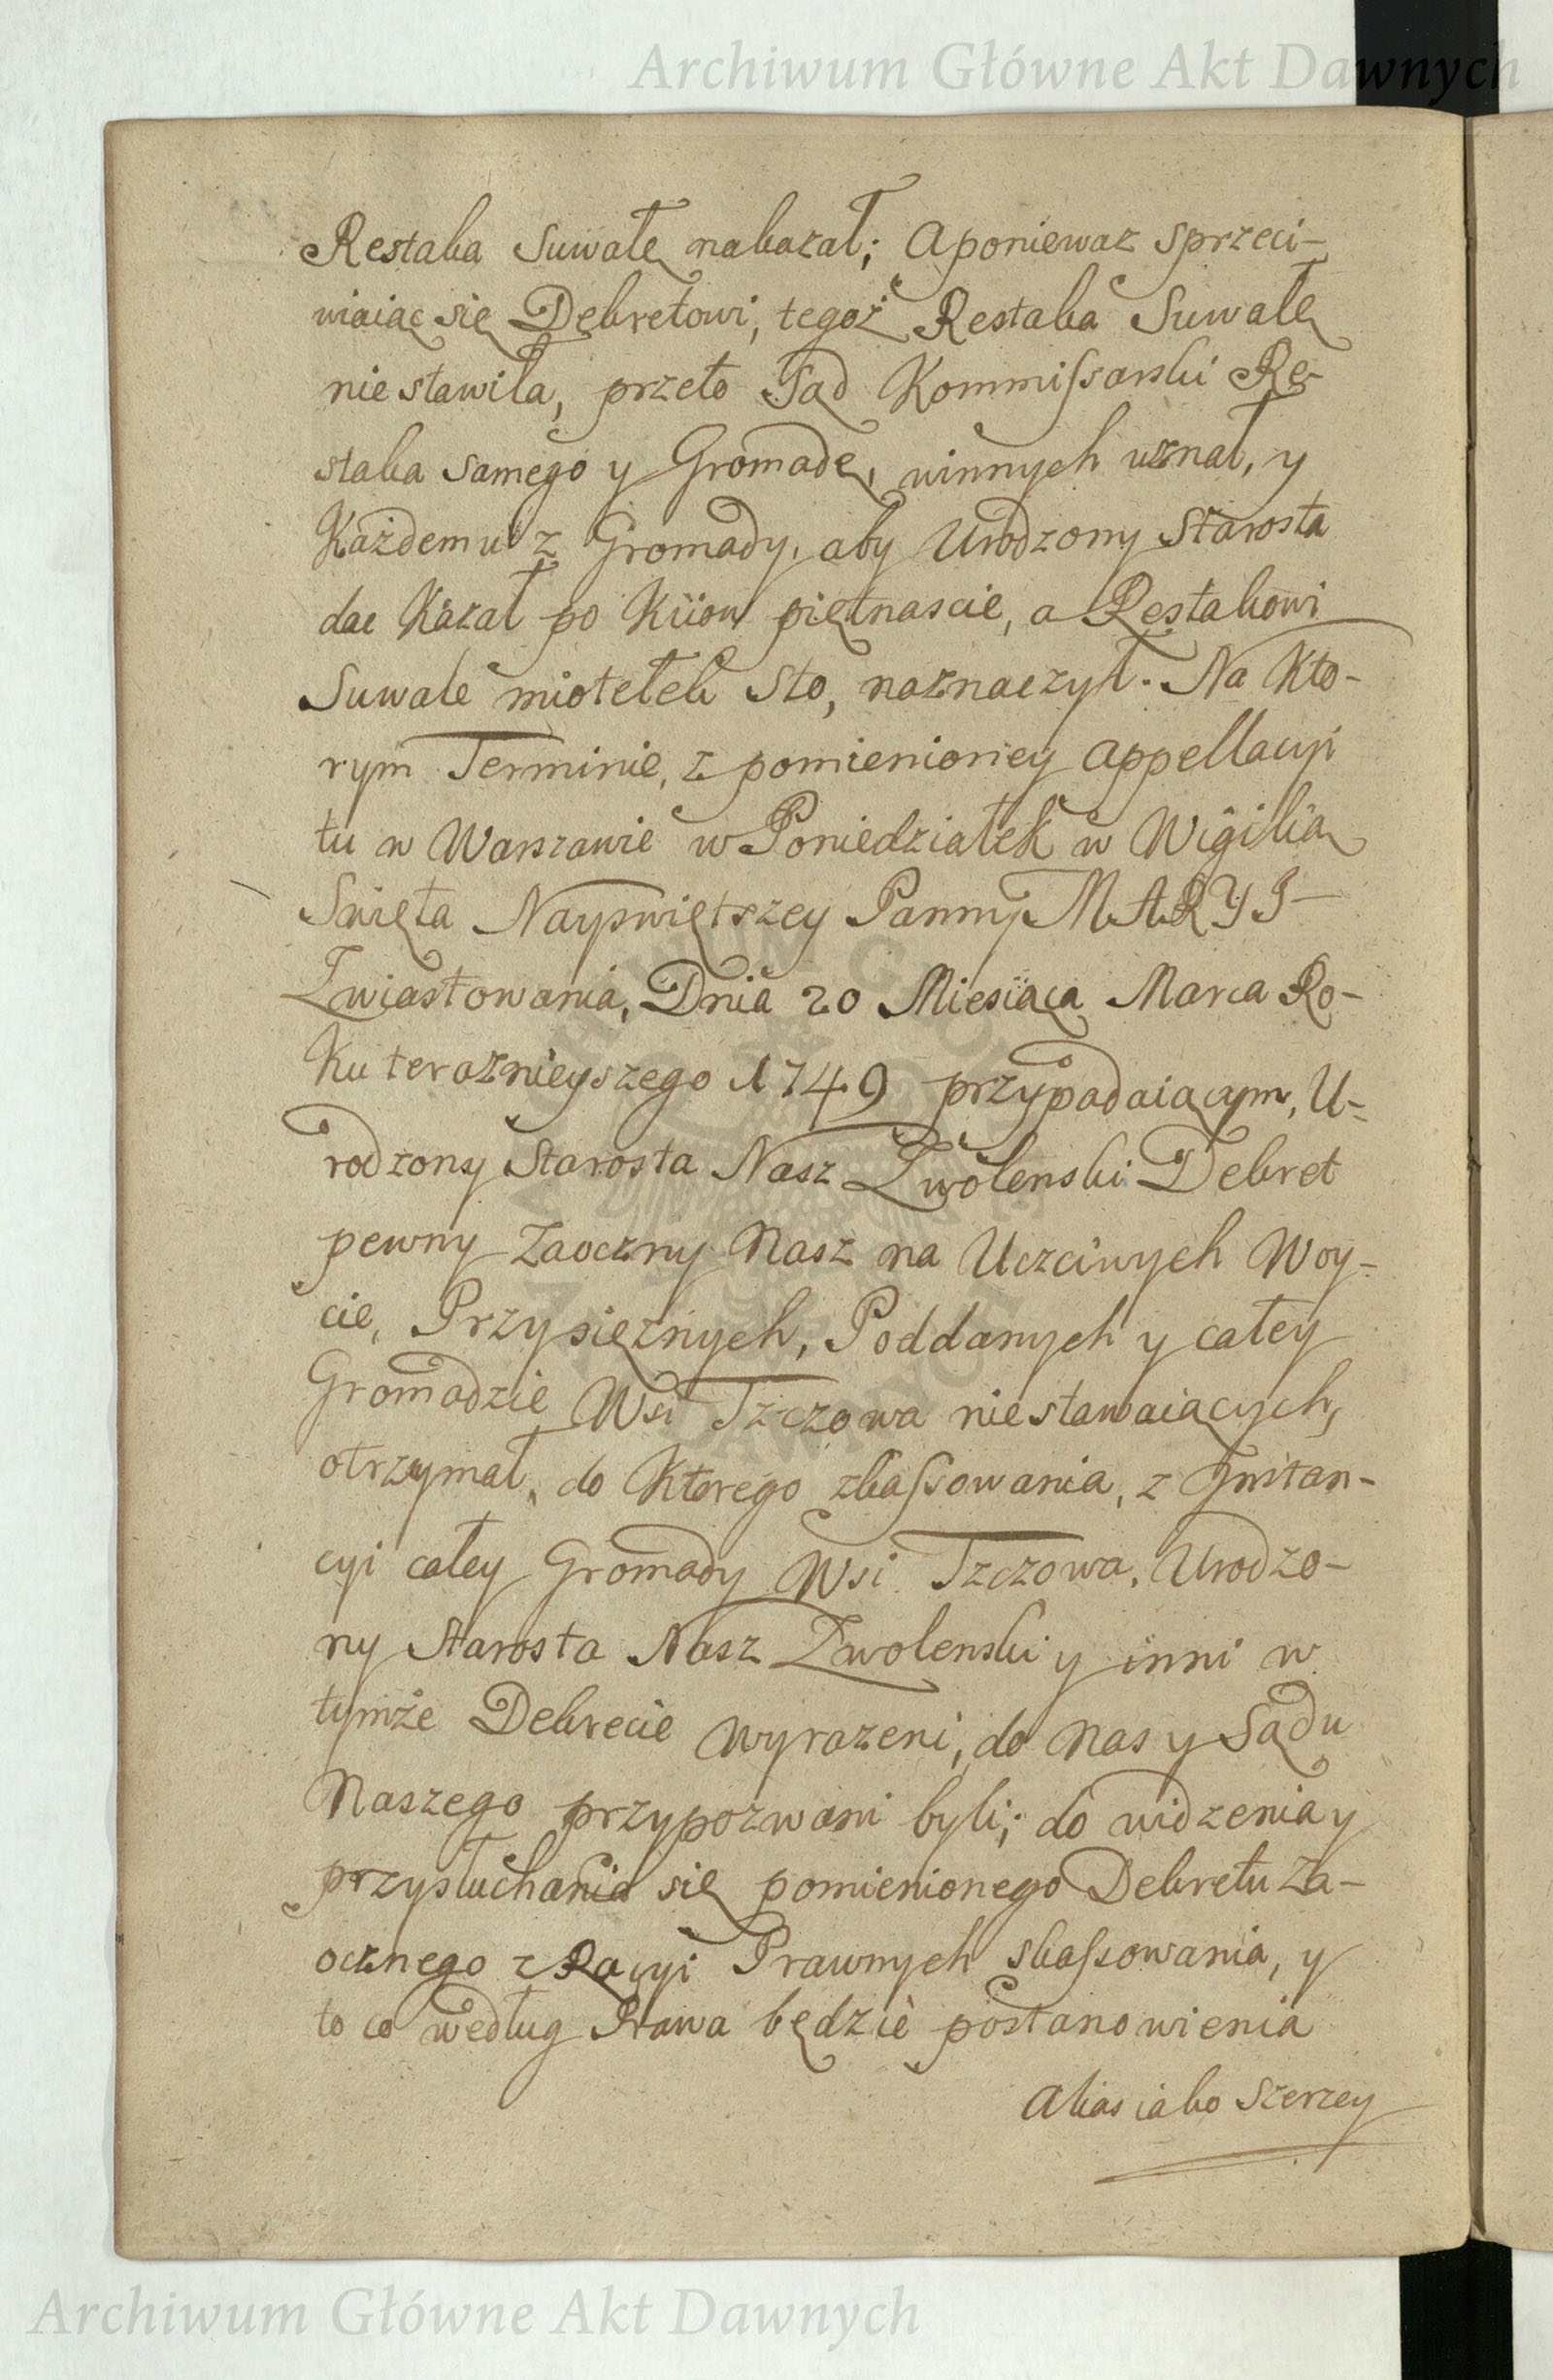 Archiwum Główne Akt Dawnych
Restaka Suwałę nakazał; Aponiewaz sprzeci-
wiaiąc się Dekretowi, tegoż Restaka Suwałę
nie stawiła, przeto Sąd Kommissarski Re-
staka samego y Gromadę, winnych uznał, y
Każdemu z Gromady, aby Urodzony Starosta
dać Kazał po Kiiow piętnascie, a Restakowi
Suwale miotełek Sto, naznaczył. Na Kto-
rym Terminie, z pomienioney Appellacyi
tu w Warszawie w Poniedziałek w Wigilią
Swięta Nayswiętszey Panny MARYI
Zwiastowania, Dnia 20 Miesiąca Marca Ro-
Ku teraznieyszego 1749 przypadaiącym, U-
rodzony Starosta Nasz Zwolenski Dekret
pewny Zaoczny Nasz na Uczciwych Woy-
cie, Przysięznych, Poddanych y całey
Gromadzie Wsi Tzczowa niestawaiących,
otrzymał, do Ktorego zkassowania, z Instan-
cyi całey Gromady Wsi Tzczowa, Urodzo-
ny Starosta Nasz Zwolenski y inni w
tymże Dekrecie wyrazeni, do Nas y Sądu
Naszego przypozwani byli; do widzenia y
przysłuchania się pomienionego Dekretu Za-
ocznego z Racyi Prawnych skassowania, y
to co według Prawa będzie postanowienia
Akas iako szerzey
Archiwum Główne Akt Dawnych